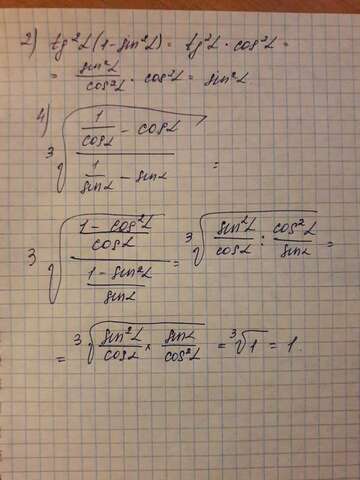 2) tg²α(1-sin²α) = tg²α · cos²α =
= sin²α/cos²α · cos²α = sin²α
4) ∛((1/cosα - cosα)/(1/sinα - sinα)) =
∛(((1-cos²α)/cosα)/((1-sin²α)/sinα)) = ∛(sin²α/cosα : cos²α/sinα) =
= ∛(sin²α/cosα × sinα/cos²α) = ∛1 = 1.